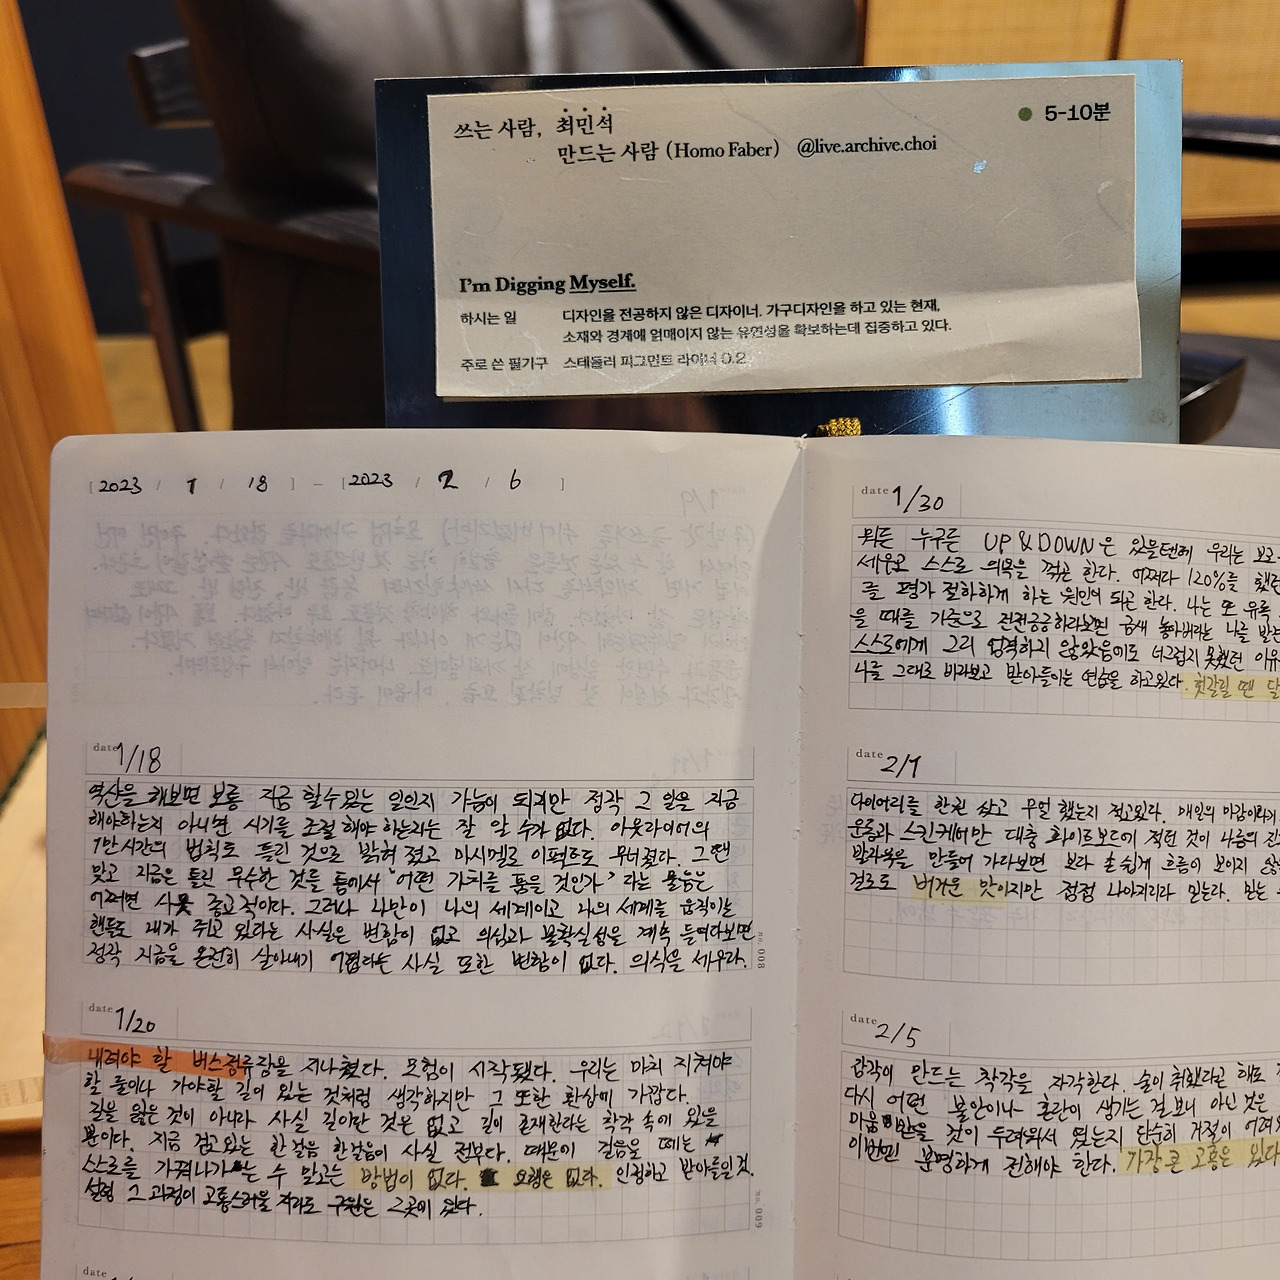 쓰는 사람, 최민석
만드는 사람 (Homo Faber) @live.archive.choi
5-10분
I'm Digging Myself.
하시는 일 디자인을 전공하지 않은 디자이너. 가구디자인을 하고 있는 현재,
소재와 경계에 얽매이지 않는 유연성을 확보하는데 집중하고 있다.
주로 쓴 필기구 스테들러 피그먼트 라이너 0.2
[2023 / 1 / 18 ] - [2023 / 2 / 6 ]
date 1/18
역산을 해보면 보통 지금 할 수 있는 일인지 가늠이 되지만 정작 그 일을 지금
해야하는지 아니면 시기를 조절해야 하는지는 잘 알 수가 없다. 아웃라이어의
1만 시간의 법칙도 틀린 것으로 밝혀졌고 마시멜로 이펙트도 무너졌다. 그땐
맞고 지금은 틀린 무수한 것들 틈에서 "어떤 가치를 품을 것인가" 라는 물음은
어쩌면 사뭇 종교적이다. 그러나 나만이 나의 세계이고 나의 세계를 움직이는
핸들도 내가 쥐고 있다는 사실은 변함이 없고 의심과 불확실성을 계속 들여다보면
정작 지금을 온전히 살아내기 어렵다는 사실 또한 변함이 없다. 의식을 세우라.
no. 008
date 1/20
내려야 할 버스정류장을 지나쳤다. 모험이 시작됐다. 우리는 마치 지켜야
할 룰이나 가야할 길이 있는 것처럼 생각하지만 그 또한 환상에 가깝다.
길을 잃은 것이 아니라 사실 길이란 것은 없고 길이 존재한다는 착각 속에 있을
뿐이다. 지금 걷고있는 한걸음 한걸음이 사실 전부다. 때문에 걸음을 떼는
스스로를 가꿔나가는 수 말고는 방법이 없다. 요행은 없다. 인정하고 받아들일 것.
설령 그 과정이 고통스러울 지라도 구원은 그곳에 있다.
no. 009
date 1/30
뭐든 누구든 UP & DOWN은 있을텐데 우리는
세우고 스스로 의욕을 꺾곤 한다. 어쩌다 120%를
를 평가 절하하게 하는 원인이 되곤 한다. 나는 또
을 때를 기준으로 전전긍긍하다보면 금새 놓아버리는 나를
스스로에게 그리 엄격하지 않았음에도 너그럽지 못했던
나를 그대로 바라보고 받아들이는 연습을 하고있다. 헷갈릴 땐
date 2/1
다이어리를 한권 샀고 무얼 했는지 적고있다. 매일의
운동과 스킨케어만 대충 화이트보드에 적던 것이 나름의
발자욱을 만들어 가다보면 보다 손쉽게 흐름이 보이지
걸로도 버거운 맛이지만 점점 나아지리라 믿는다. 믿는
date 2/5
감각이 만드는 착각을 자각한다. 술이 취했다고 해도
다시 어떤 불안이나 혼란이 생기는 걸 보니 아닌 것은
것이 두려워서 였는지 단순히 거절이
이번엔 분명하게 전해야 한다. 가장 큰 고통은
date